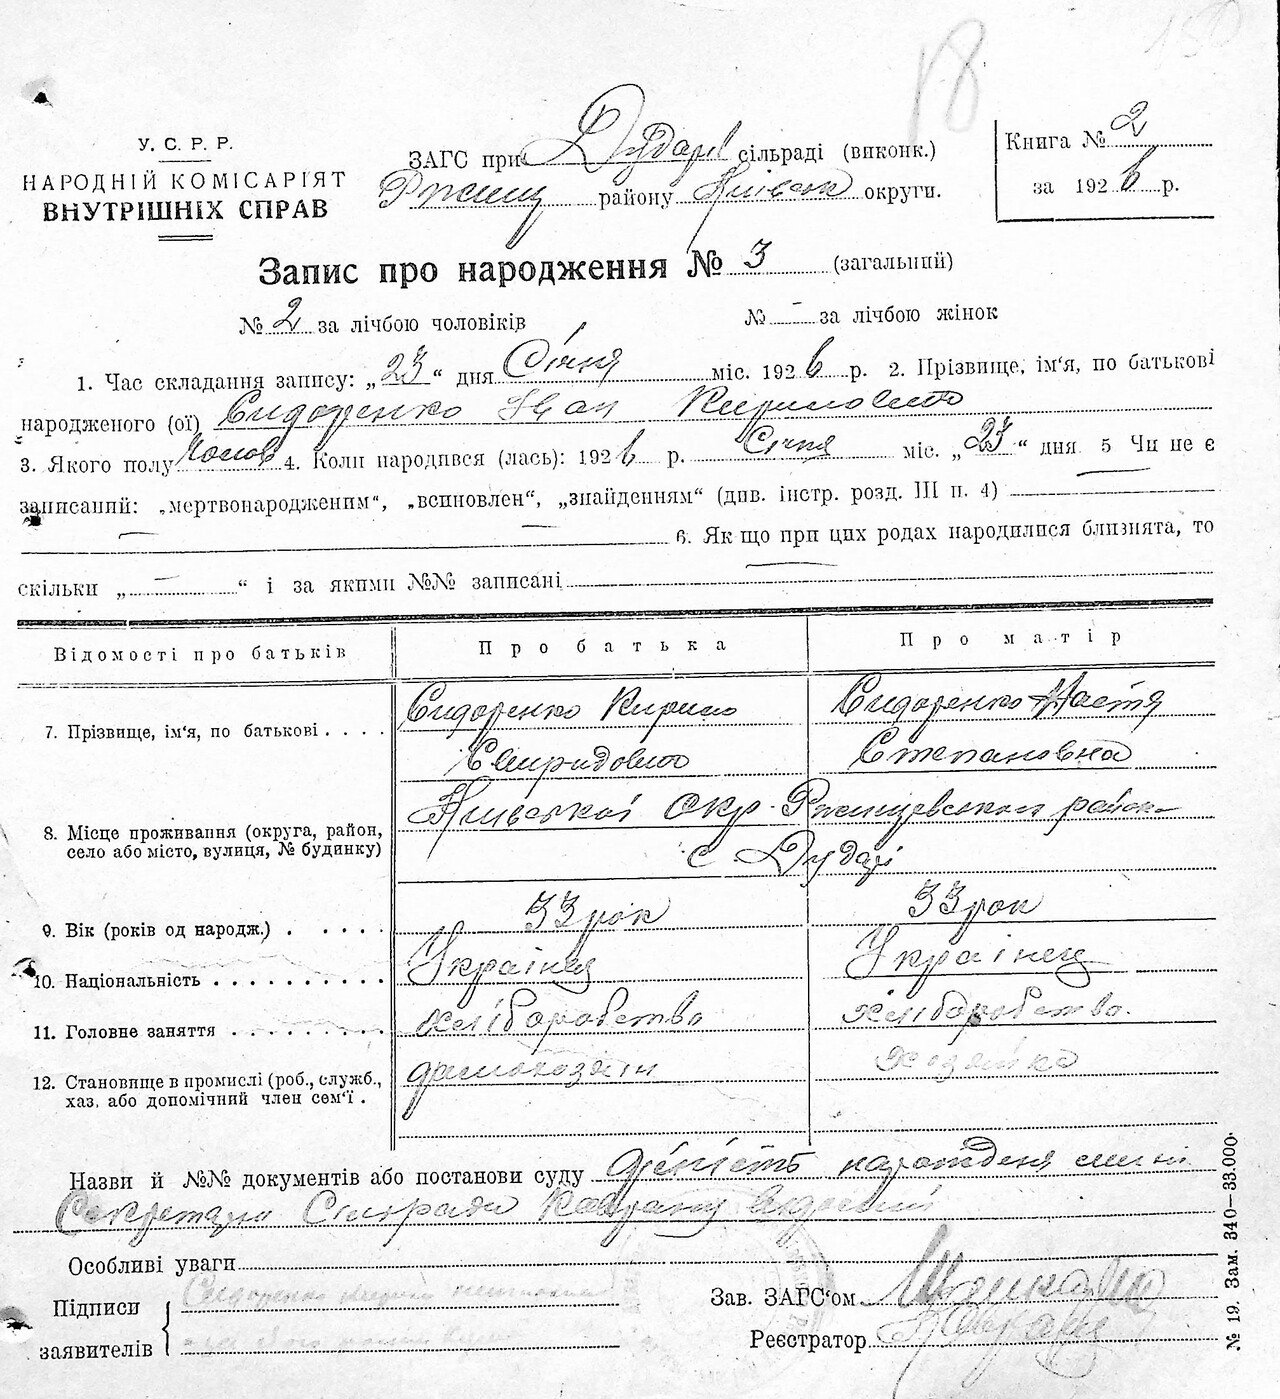 18
150
У. С. Р. Р.
НАРОДНІЙ КОМІСАРІЯТ
ВНУТРІШНІХ СПРАВ
ЗАГС при Дударі сільраді (виконк.)
Ржищ району Київськ округи.
Книга № 2
за 1926 р.
Запис про народження № 3 (загальний)
№ 2 за лічбою чоловіків № - за лічбою жінок
1. Час складання запису: „23“ дня Січня міс. 1926 р. 2. Прізвище, ім‘я, по батькові
народженого (ої) Сидоренко Іван Кирилович
3. Якого полу Чолов 4. Коли народився (лась): 1926 р. Січня міс. „23“ дня 5 Чи не є
записаний: „мертвонародженим“, „всиновлен“, „знайденням“ (див. інстр. розд. III п. 4)
6. Якщо при цих родах народилися близнята, то
скільки „ — “ і за якими №№ записані
Відомості про батьків Про батька Про матір
7. Прізвище, ім‘я, по батькові . . . . Сидоренко Кирило Сидоренко Настя
Спиридович Степановна
8. Місце проживання (округа, район, село або місто, вулиця, № будинку) Київської Окр. Ржищевського район
с Дударі
9. Вік (років од народж.) . . . . . 33 рок 33 рок
10. Національність . . . . . . . . . . Українец Українец
11. Головне заняття . . . . . . . . . хліборобство хліборобство.
12. Становище в промислі (роб., служб., хаз. або допомічний член сем‘ї . домохозяин хозяйка
Назви й №№ документів або постанови суду народженя
Секретарю Сільради
Особливі уваги
Підписи
заявителів
Сидоренко
Зав. ЗАГС‘ом
Реєстратор
№ 19. Зам. 340—33.000.